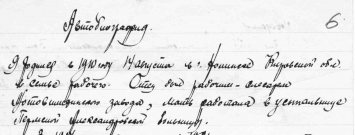 6
Автобиография.
Я родился в 1910 году 14 августа в г. Нолинске Кировской обл.
в семье рабочего. Отец был рабочим-слесарем
завода, Мать работала
Александровской больницы.